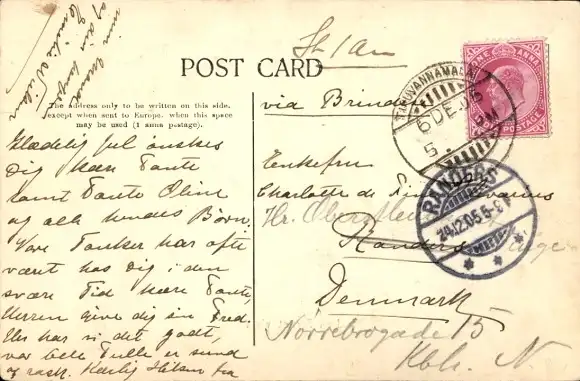 POST CARD
The address only to be written on this side,
except when sent to Europe, when this space
may be used (1 anna postage).
Glædelig Jul ønskes
Dig kære Tante
samt Tante Oline
og alle hendes Børn.
Vore Tanker har ofte
været hos Dig i den
svære Tid kære Tante,
Herren give dig sin Fred.
Her har vi det godt,
vor lille Fulle er sund
og rask. Kærlig Hilsen fra
via Brind
ONE ANNA
POSTAGE
TIRUVANNAMALAI
6 DE 05
RANDERS
24.12.05.5-9
Enkefru
Charlotte de
Hr.
Randers
Denmark
Nørrebrogade 15
Kbh. N.